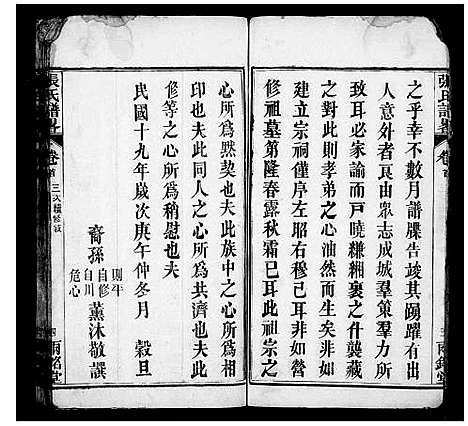 之乎幸不數月譜牒告竣其踴躍有出
人意外者良由眾志成城羣策羣力所
致耳必家諭而戸曉縑緗裹之什襲藏
之對此則孝弟之心油然而生矣非如
建宗祠僅序左昭右穆已耳非如營
修祖墓第隆春露秋霜已耳此祖宗之
心所為默契也夫此族中之心所為相
印也夫此同人之心所為共濟也夫此
修等之心所為稍慰也夫
民國十九年歲次庚午仲冬月 穀旦
裔孫 則平 自修 自川 危心 薰沐敬譔
張氏譜畧 卷首 三次續修 雨銘堂